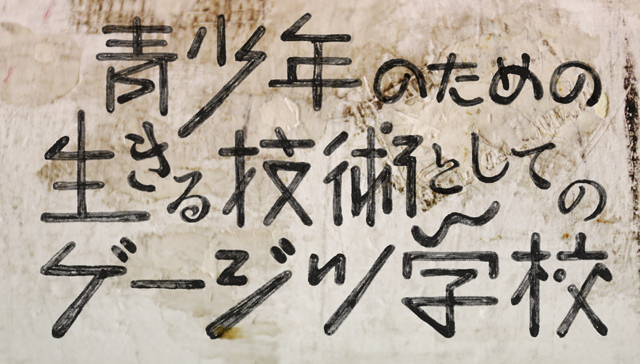 青少年のための
生きる技術としての
ゲージツ学校